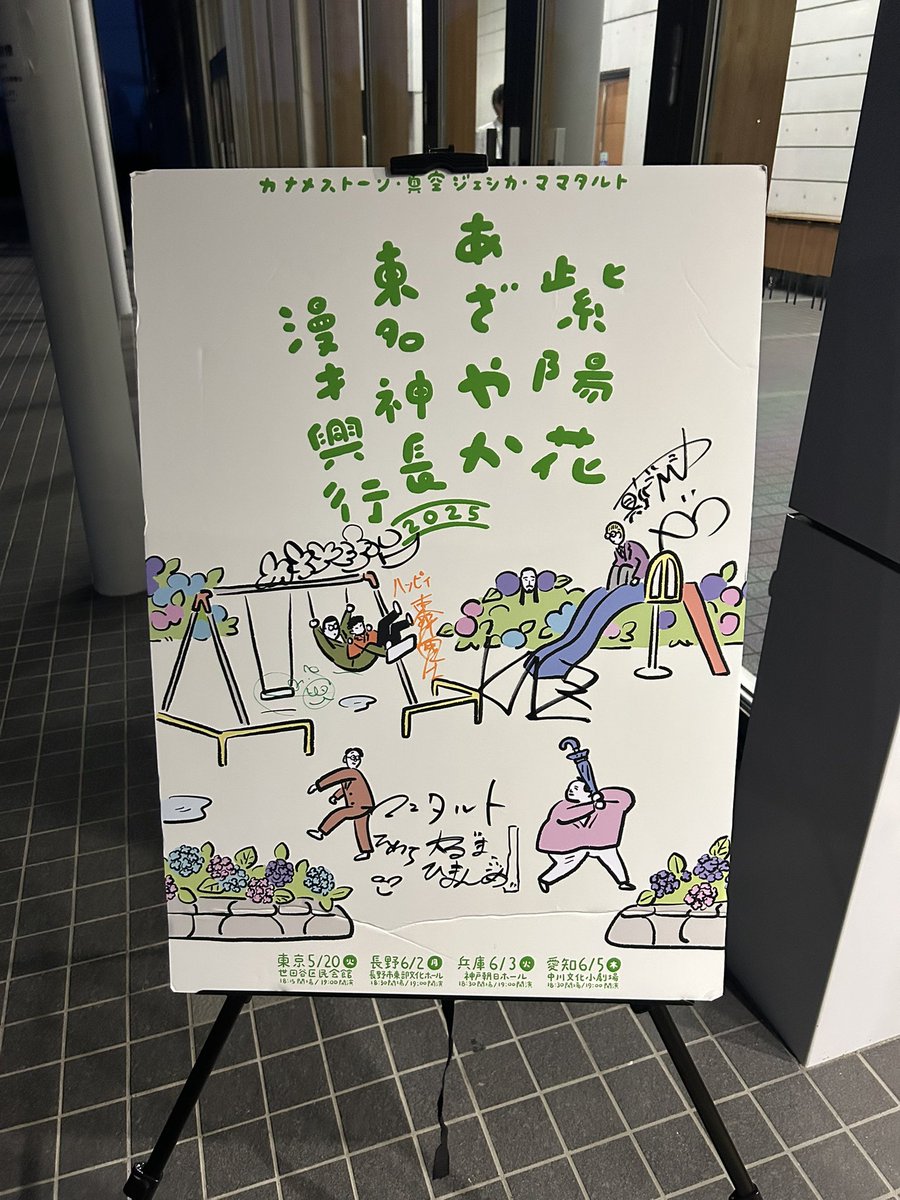 カナメストーン・真空ジェシカ・ママタルト
紫陽花
あざやか
東名神長
漫才興行
2025
ハッピィ
ママタルト
ひわら
ひまんめ
東京5/20火
世田谷区民会館
18:15開場/19:00開演
長野6/2月
長野市東部文化ホール
18:30開場/19:00開演
兵庫6/3火
神戸朝日ホール
18:30開場/19:00開演
愛知6/5木
中川文化小劇場
18:30開場/19:00開演